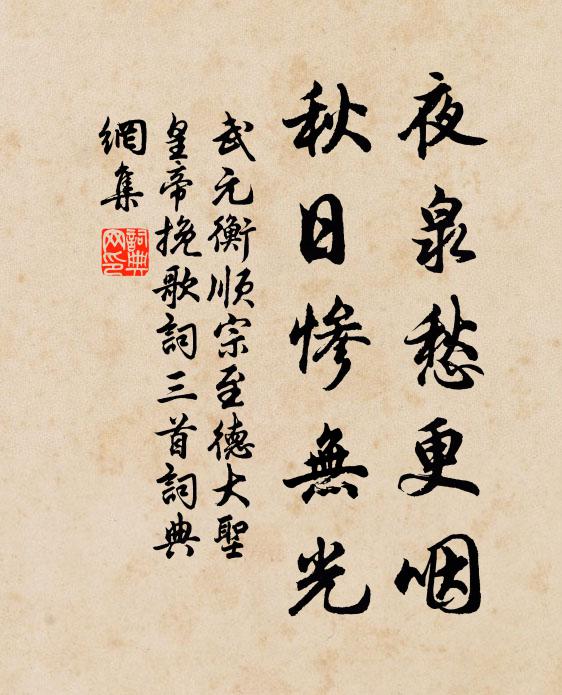 夜泉愁更咽
秋日慘無光
武元衡順宗至德大聖
皇帝挽歌詞三首詞典
網集
詞典
网印